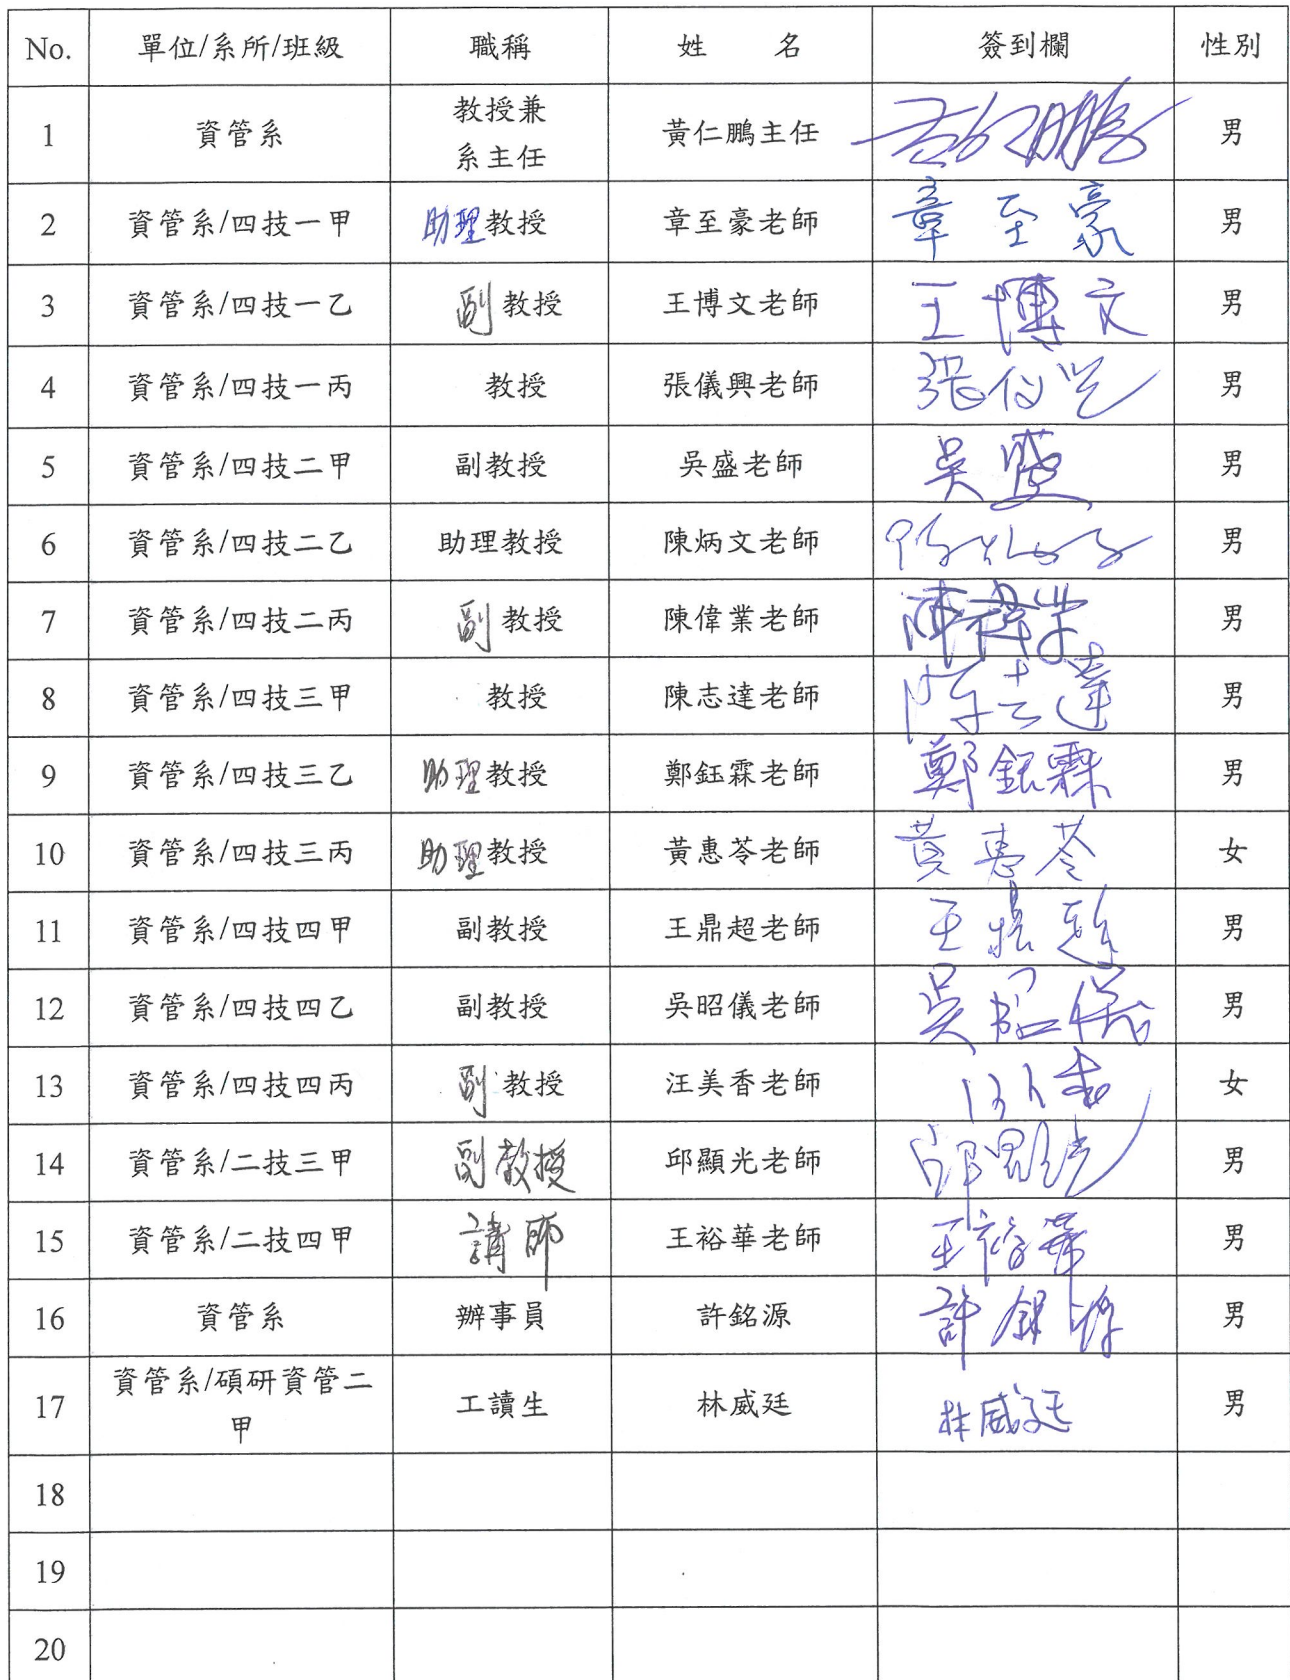 No. 單位/系所/班級 職稱 姓 名 簽到欄 性別
1 資管系 教授兼 系主任 黃仁鵬主任 黃仁鵬 男
2 資管系/四技一甲 助理教授 章至豪老師 章至豪 男
3 資管系/四技一乙 副教授 王博文老師 王博文 男
4 資管系/四技一丙 教授 張儀興老師 張儀興 男
5 資管系/四技二甲 副教授 吳盛老師 吳盛 男
6 資管系/四技二乙 助理教授 陳炳文老師 陳炳文 男
7 資管系/四技二丙 副教授 陳偉業老師 陳偉業 男
8 資管系/四技三甲 教授 陳志達老師 陳志達 男
9 資管系/四技三乙 助理教授 鄭鈺霖老師 鄭鈺霖 男
10 資管系/四技三丙 助理教授 黃惠苓老師 黃惠苓 女
11 資管系/四技四甲 副教授 王鼎超老師 王鼎超 男
12 資管系/四技四乙 副教授 吳昭儀老師 吳昭儀 男
13 資管系/四技四丙 副教授 汪美香老師 女
14 資管系/二技三甲 副教授 邱顯光老師 邱顯光 男
15 資管系/二技四甲 講師 王裕華老師 王裕華 男
16 資管系 辦事員 許銘源 許銘源 男
17 資管系/碩研資管二
甲 工讀生 林威廷 林威廷 男
18
19
20